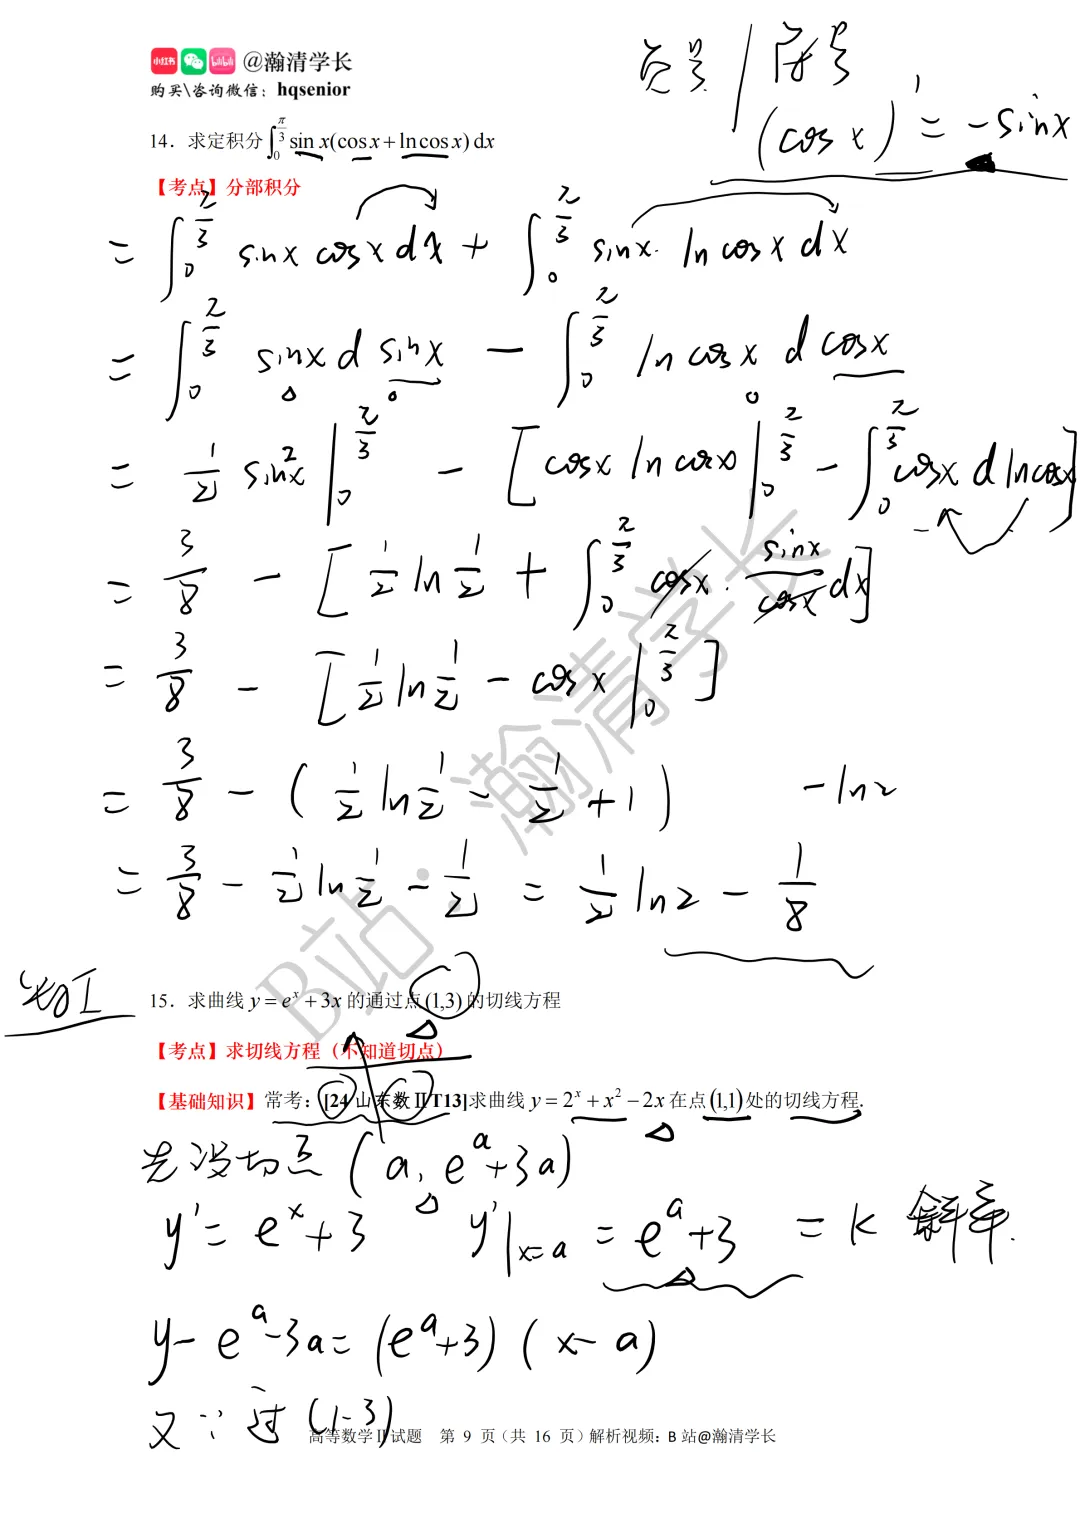 @瀚清学长
购买\咨询微信：hqsenior
负号 /
(cos x)' = -sinx
14．求定积分∫₀^(π/3) sin x(cos x + ln cos x) dx
【考点】分部积分
= ∫₀^(π/3) sinx cosx dx + ∫₀^(π/3) sinx · ln cosx dx
= ∫₀^(π/3) sinx d sinx - ∫₀^(π/3) ln cosx d cosx
= 1/2 sin²x |₀^(π/3) - [cosx ln cosx |₀^(π/3) - ∫₀^(π/3) cosx d ln cosx]
= 3/8 - [1/2 ln 1/2 + ∫₀^(π/3) cosx · sinx/cosx dx]
= 3/8 - [1/2 ln 1/2 - cosx |₀^(π/3)]
= 3/8 - (1/2 ln 1/2 - 1/2 + 1) -ln2
= 3/8 - 1/2 ln 1/2 - 1/2 = 1/2 ln2 - 1/8
15．求曲线 y = eˣ + 3x 的通过点 (1,3) 的切线方程
【考点】求切线方程（不知道切点）
【基础知识】常考：[24 山东数ⅡT13]求曲线 y = 2ˣ + x² − 2x 在点 (1,1) 处的切线方程.
先设切点 (a, eᵃ+3a)
y' = eˣ+3 y'|x=a = eᵃ+3 = k 斜率.
y - eᵃ - 3a = (eᵃ+3)(x-a)
又∵过(1-3)
高等数学Ⅱ试题 第 9 页（共 16 页）解析视频：B 站@瀚清学长
B站·瀚清学长